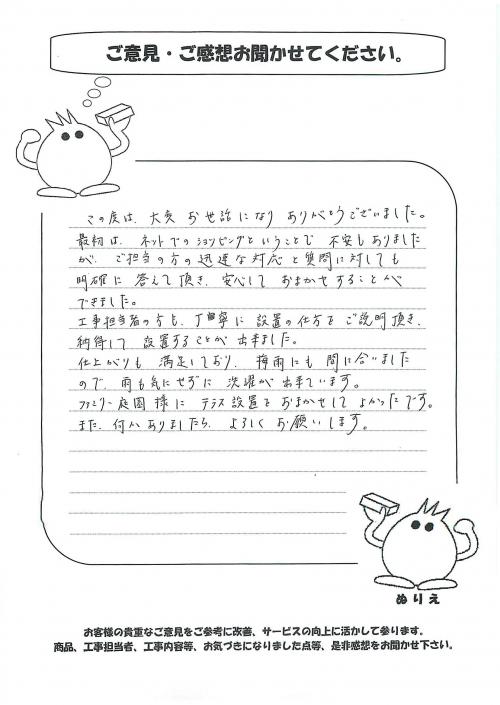 ご意見・ご感想お聞かせてください。
この度は、大変 お世話になり ありがとうございました。
最初は、ネットでのショッピングということで 不安もありました
が、ご担当の方の迅速な対応と質問に対しても
明確に 答えて頂き、安心して おまかせすることが
できました。
工事担当者の方も、丁寧に 設置の仕方を ご説明頂き、
納得して 設置することが 出来ました。
仕上がりも 満足しており、梅雨にも 間に合いました
ので、雨も気にせずに 洗濯が 出来ています。
ファミリー庭園様に テラス設置を おまかせして よかったです。
また、何かありましたら、よろしく お願いします。
ぬりえ
お客様の貴重なご意見をご参考に改善、サービスの向上に活かして参ります。
商品、工事担当者、工事内容等、お気づきになりました点等、是非感想をお聞かせ下さい。